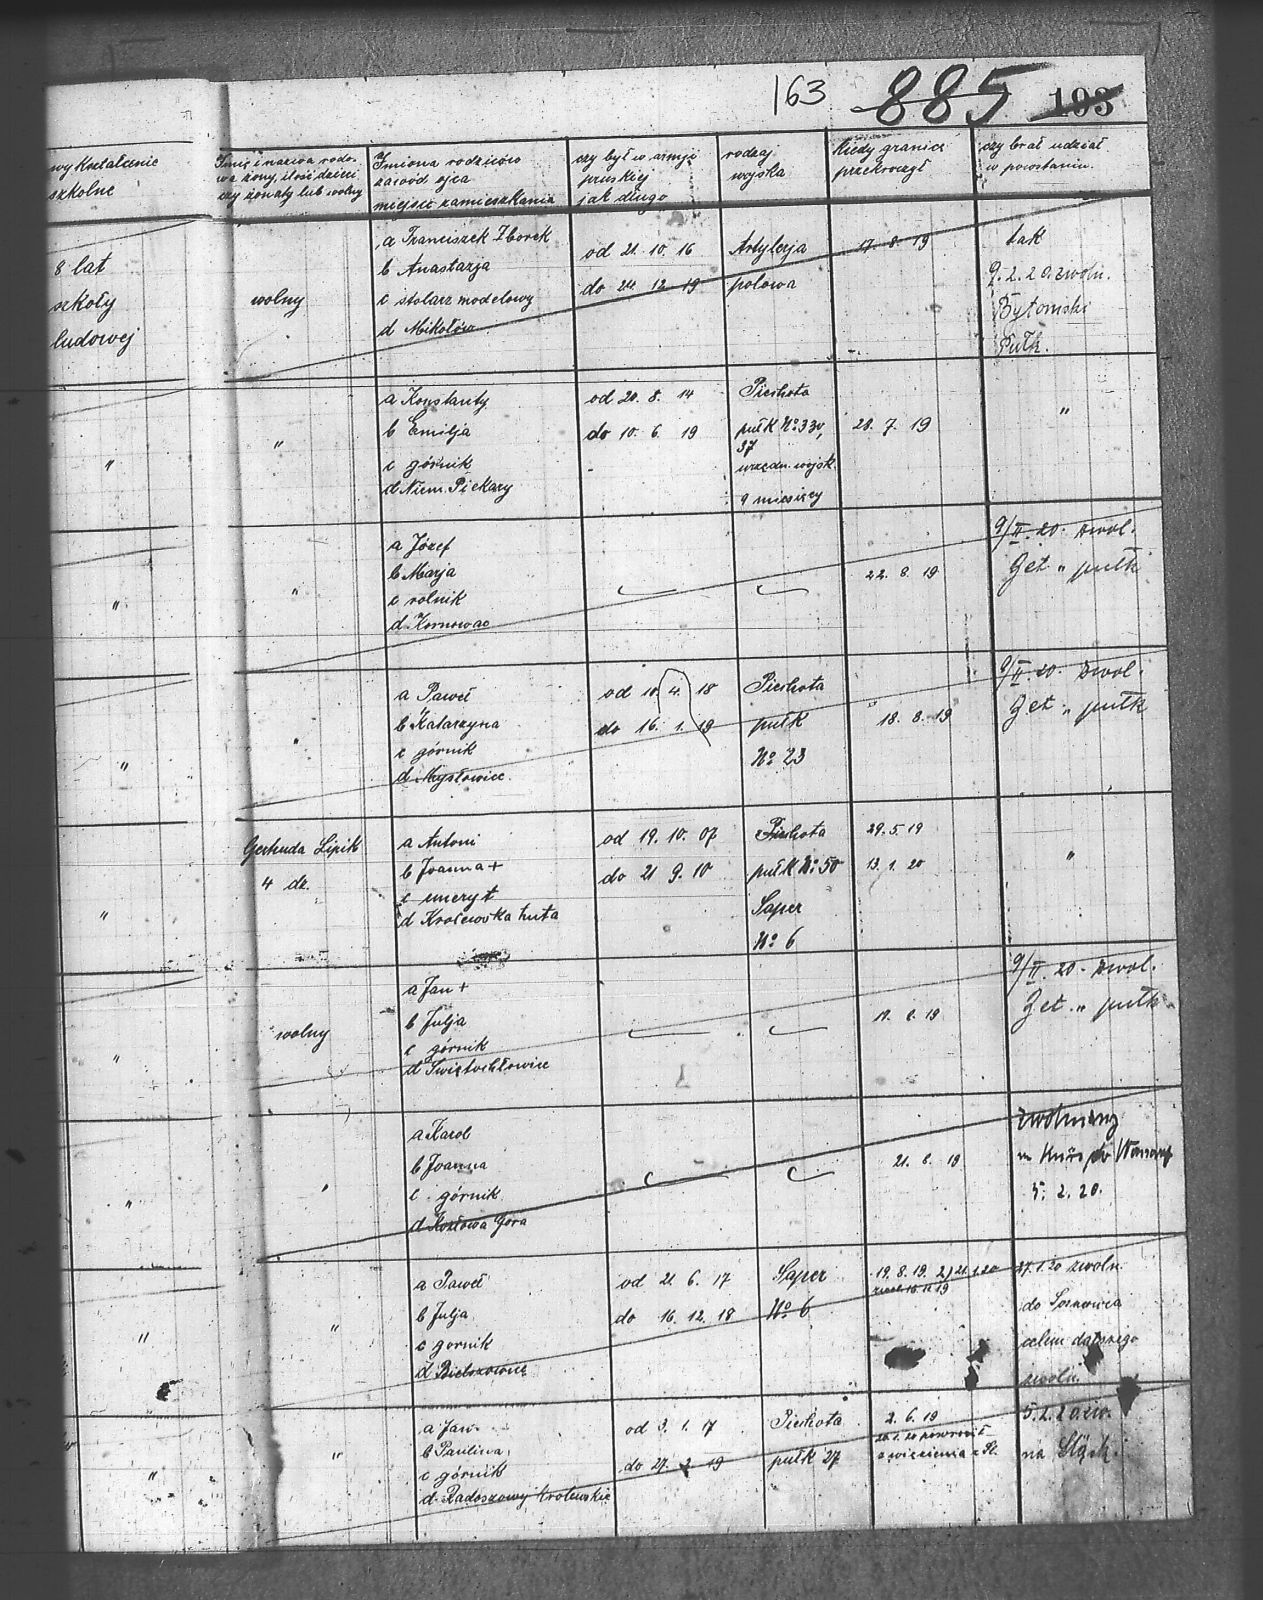 163 885 193
wykształcenie
szkolne
Imię i nazwa rodo-
wa żony, ilość dzieci
czy żonaty lub wolny
Imiona rodziców
zawód ojca
miejsce zamieszkania
czy był w armji
pruskiej
jak długo
rodzaj
wojska
Kiedy granicę
przekroczył
czy brał udział
w powstaniu
8 lat
szkoły
ludowej
wolny
a Franciszek Zborek
b Anastazja
c stolarz modelowy
d Mikołów
od 21. 10. 16
do 24. 12. 19
Artylerja
polowa
17. 8. 19
tak
9. 2. 20. zwoln.
Bytomski
Pułk.
"
"
a Konstanty
b Emilja
c górnik
d Niem. Piekary
od 20. 8. 14
do 10. 6. 19
Piechota
pułk No 330,
37
urzędn. wojsk.
9 miesięcy
20. 7. 19
"
"
"
a Józef
b Marja
c rolnik
d Kornowac
22. 8. 19
9/II. 20. zwol.
Zet " pułk
"
"
a Paweł
b Katarzyna
c górnik
d Mysłowice
od 10. 4. 18
do 16. 1. 19
Piechota
pułk
No 23
18. 8. 19
9/II. 20. zwol.
Zet " pułk
"
Gertruda Lipik
4 dz.
a Antoni
b Joanna +
c emeryt
d Królewska huta
od 19. 10. 07
do 21 9. 10
Piechota
pułk No 50
Saper
No 6
29. 5. 19
13. 1. 20
"
"
wolny
a Jan +
b Julja
c górnik
d Świętochłowice
19. 8. 19
9/II. 20. zwol.
Zet " pułk
"
"
a Karol
b Joanna
c górnik
d Kozłowa Góra
21. 8. 19
zwolniony
5. 2. 20.
"
"
a Paweł
b Julja
c gornik
d Bielszowice
od 21 6. 17
do 16. 12. 18
Saper
No 6
19. 8. 19. 2) 21. 1. 20
zwol. 16. 11 19
27. 1. 20 zwoln.
do Sosnowca
celem dalszego
zwoln.
"
"
a Jan
b Paulina
c górnik
d Radoszowy Królewskie
od 3. 1. 17
do 27. 2. 19
Piechota
pułk 27
2. 6. 19
20. 1. 20 powrócił
z więzienia z Śl.
5. 2. 20. zw.
na Śląsk.